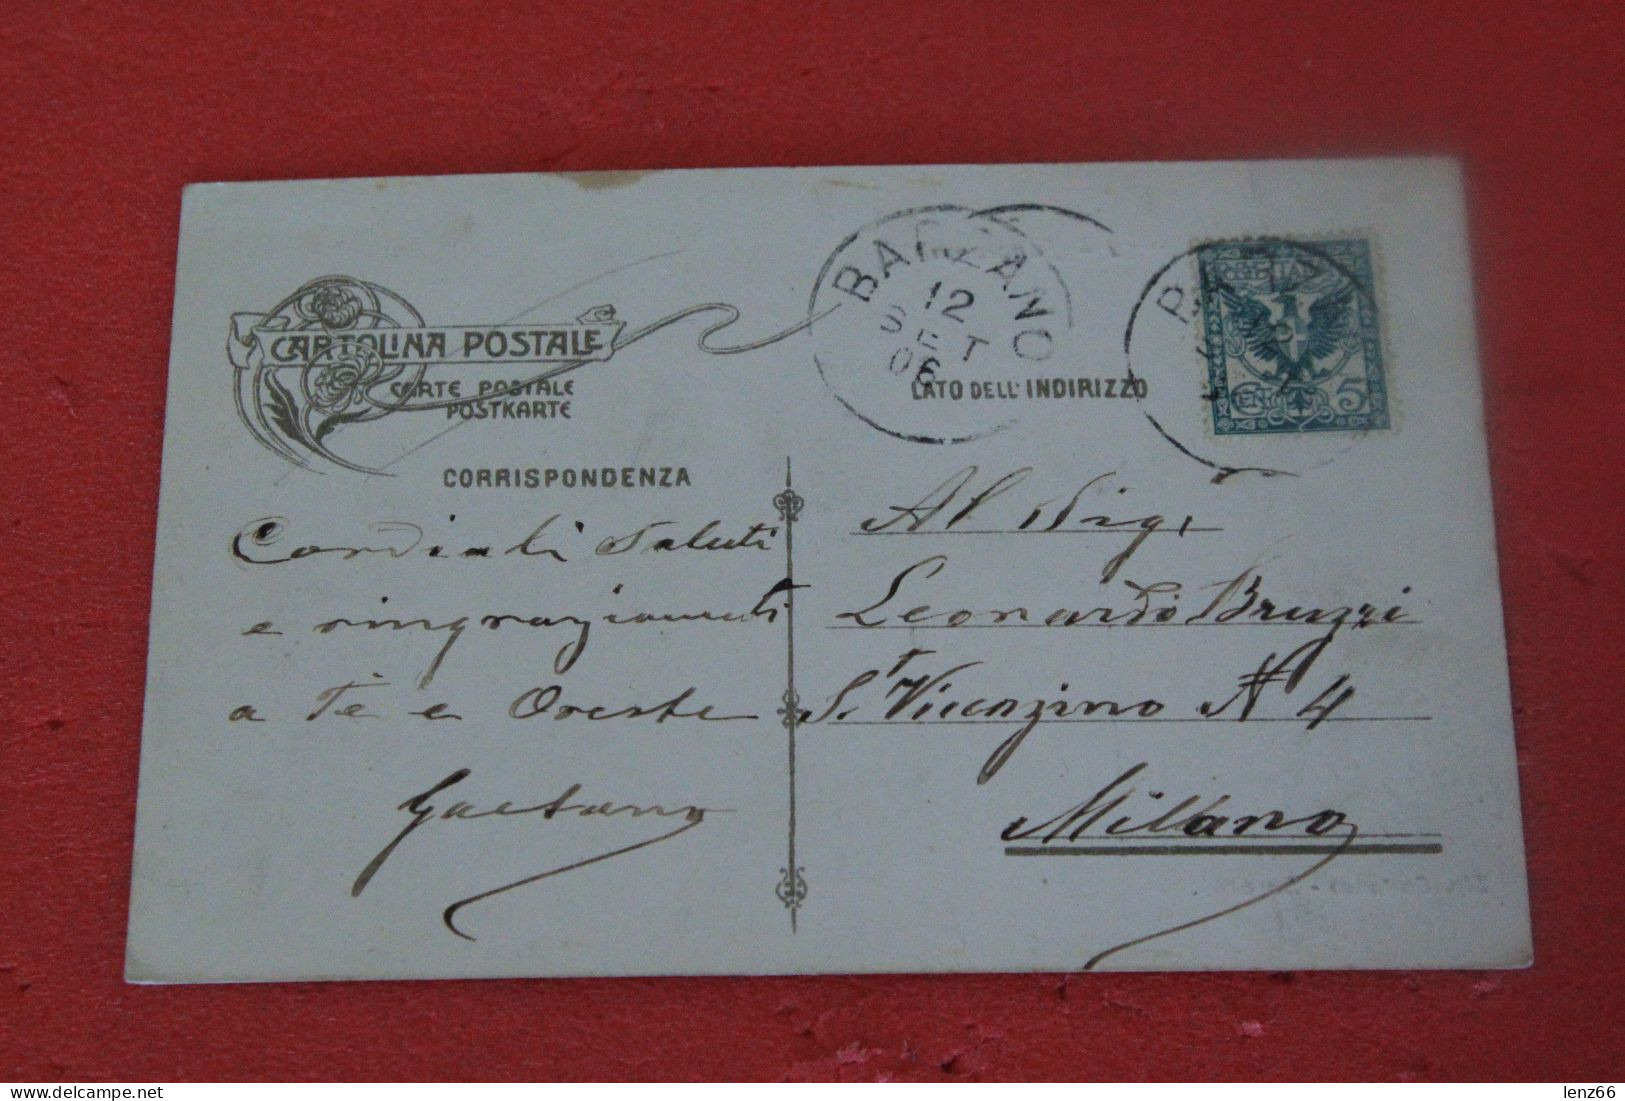 CARTOLINA POSTALE
CARTE POSTALE
POSTKARTE
CORRISPONDENZA
Cordiali saluti
e ringraziamenti
a Te e Oreste
Gaetano
BARZANO
12
SET
06
LATO DELL'INDIRIZZO
CENT 5
Al Sig.
Leonardo Bruzzi
S.t Vicenzino N 4
Milano
lenz66